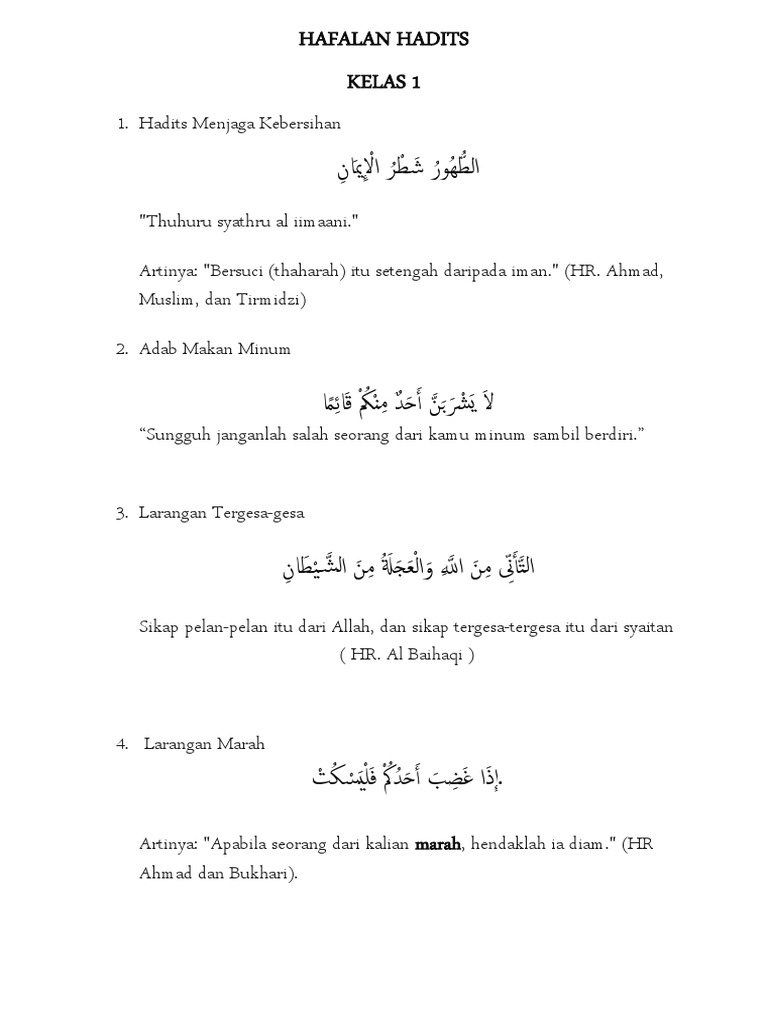 HAFALAN HADITS
KELAS 1
1. Hadits Menjaga Kebersihan
الطُّهُورُ شَطْرُ الْإِيمَانِ
"Thuhuru syathru al iimaani."
Artinya: "Bersuci (thaharah) itu setengah daripada iman." (HR. Ahmad,
Muslim, dan Tirmidzi)
2. Adab Makan Minum
لاَ يَشْرَبَنَّ أَحَدٌ مِنْكُمْ قَائِمًا
“Sungguh janganlah salah seorang dari kamu minum sambil berdiri.”
3. Larangan Tergesa-gesa
التَّأَنِّى مِنَ اللَّهِ وَالْعَجَلَةُ مِنَ الشَّيْطَانِ
Sikap pelan-pelan itu dari Allah, dan sikap tergesa-tergesa itu dari syaitan
( HR. Al Baihaqi )
4. Larangan Marah
إِذَا غَضِبَ أَحَدُكُمْ فَلْيَسْكُتْ.
Artinya: "Apabila seorang dari kalian marah, hendaklah ia diam." (HR
Ahmad dan Bukhari).